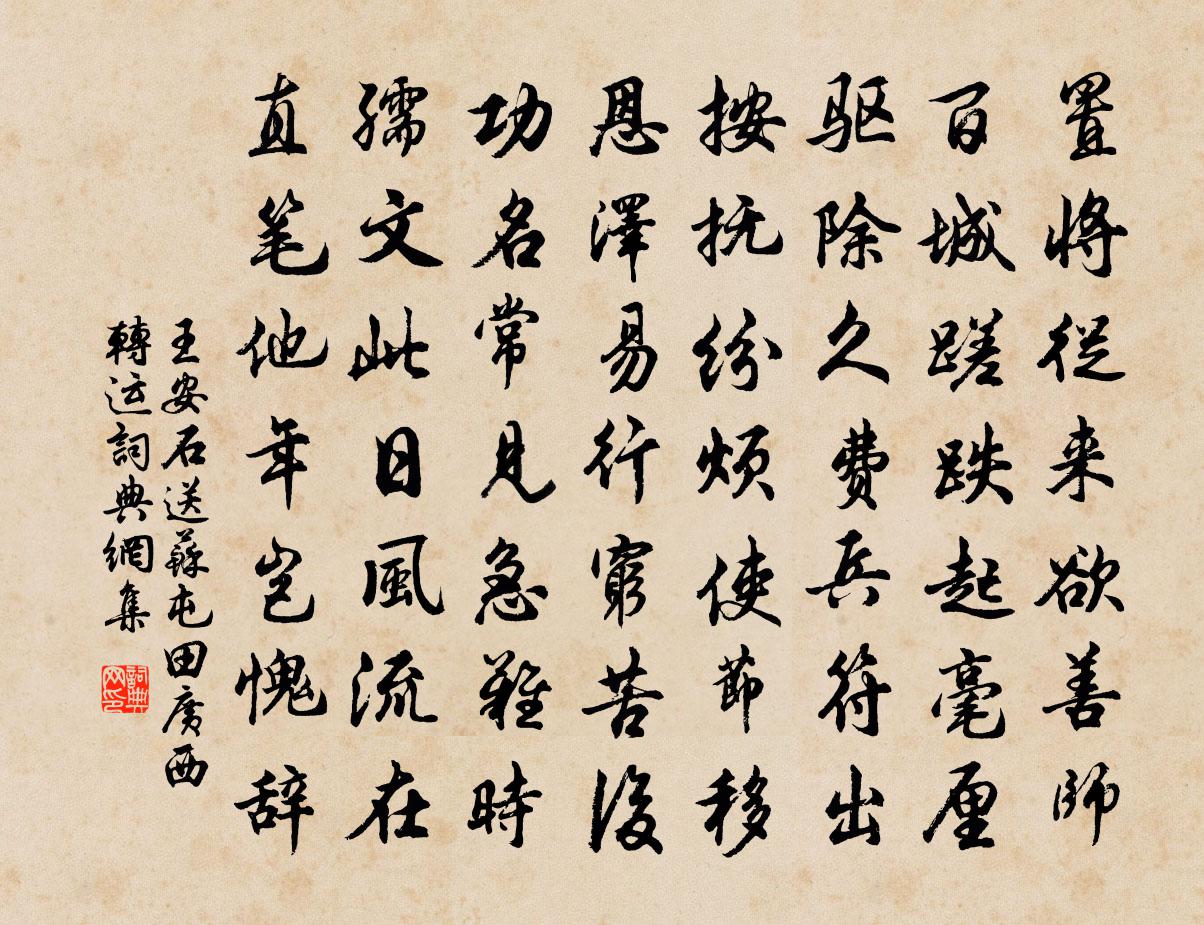 置将從来欲善師
百城蹉跌起毫厘
驱除久费兵符出
按抚纷烦使节移
恩澤易行窮苦後
功名常見急難時
孺文此日風流在
直笔他年岂愧辞
王安石送蘇屯田廣西
轉运詞典網集
詞典网印